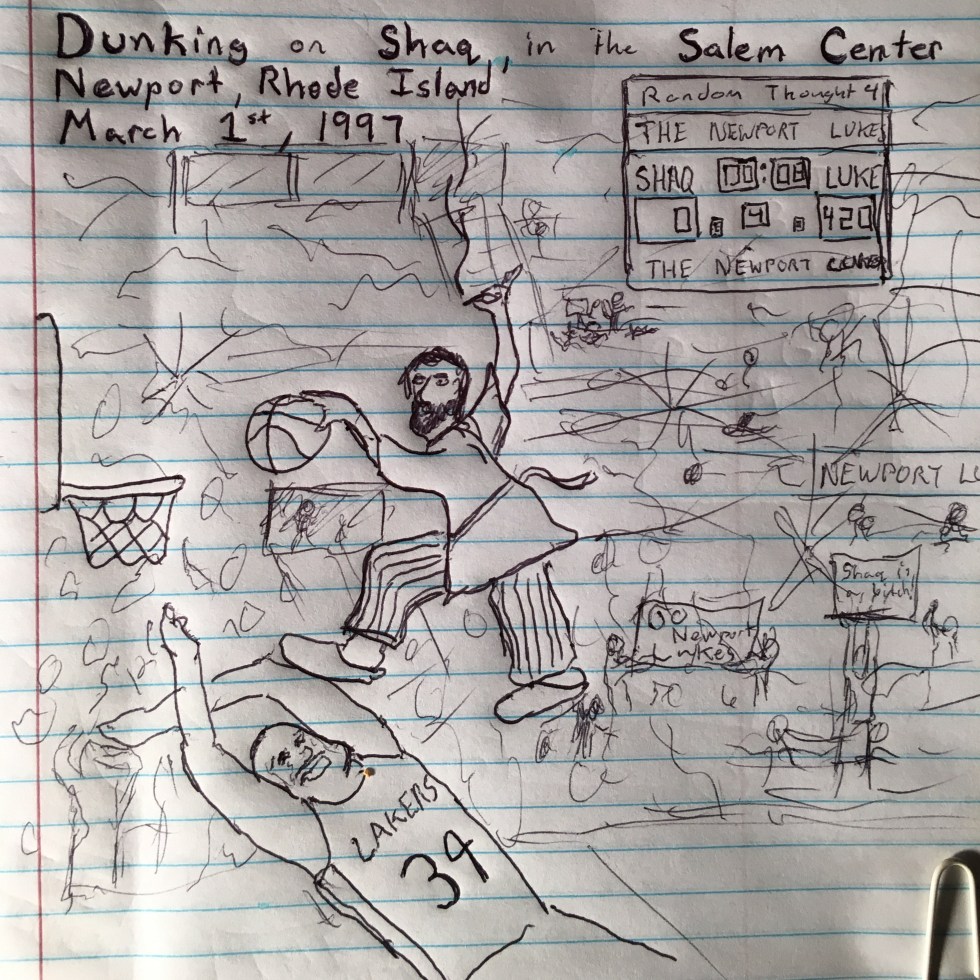 Dunking on Shaq, in the Salem Center
Newport, Rhode Island
March 1st, 1997
Random Thought 4
THE NEWPORT LUKES
SHAQ 00:08 LUKE
0 4 420
THE NEWPORT
NEWPORT L
Shaq is
my bitch!
GO
Newport
Lukes
LAKERS
34